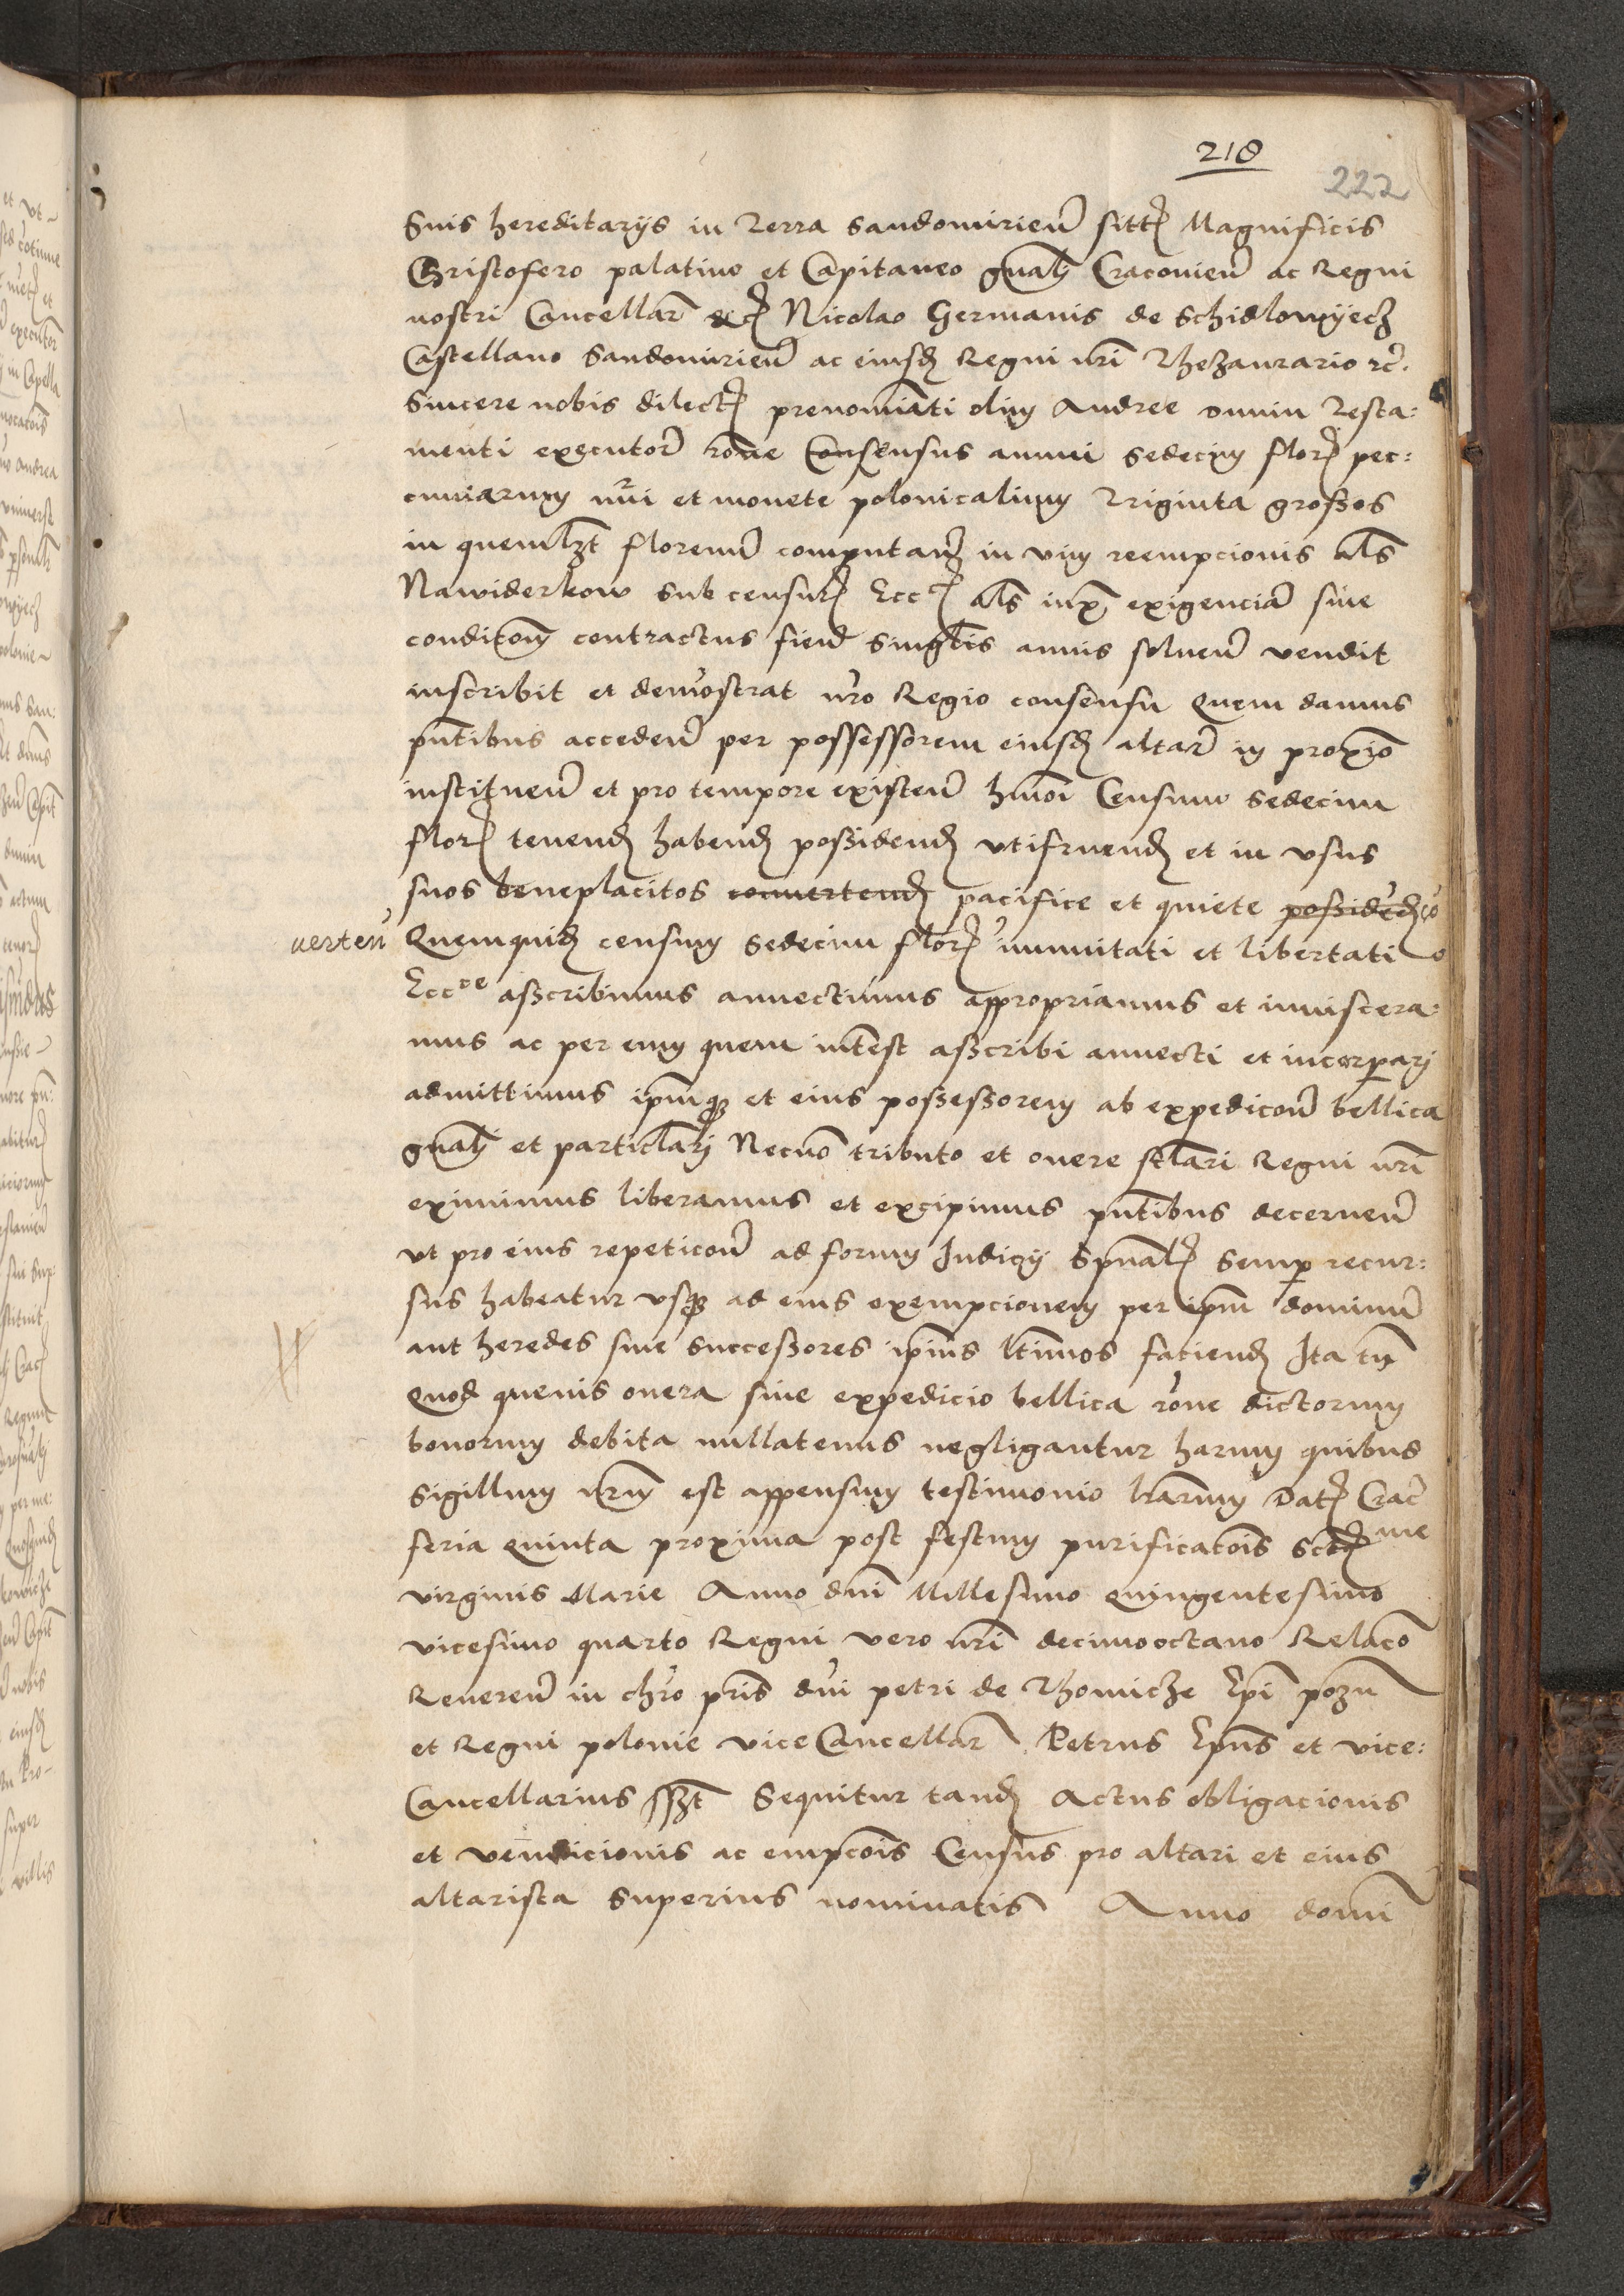 218
222
Suis hereditarijs in Terra Sandomirien sitt Magnificis
Cristofero palatino et Capitaneo gnali Cracovien ac Regni
nostri Cancellar etc Nicolao Germanis de Schidlowyecz
Castellano Sandomirien ac eiusd Regni nri Thezaurario rc.
Sincere nobis dilect prenomiati olim Andree omnin Testa:
menti executor rone Consensus annui sedecim flor pec:
cuniarum nri et monete polonicalium Triginta grossos
in quemlzt florenum computan in vim reempcionis als
Nawiderkow sub censur Ecce als iux exigenciam sive
condicom contractus fiend Singlis annis solven vendit
inscribit et demostrat nro Regio consensu Quem damus
pntibus acceden per possessorem eiusd altar in proximo
instituen et pro tempore existen hmoi Censum sedecim
flor tenend habend possidend vtifruend et in vsus
suos beneplacitos convertend pacifice et quiete possided co
verten Quemquid censum sedecim flor immunitati et libertati
Eccce asscribimus annectimus appropriamus et inviscera:
mus ac per eum quem intest asscribi annecti et incorporarj
admittimus ipmque et eius possessorem ab expedicon bellica
gnalj et particlarj Necno tributo et onere sclari Regni nri
eximimus liberamus et excipimus pntibus decernen
vt pro eius repeticon ad formam Judicij Spualis semper recur:
sus habeatur vsque ad eius exempcionem per ipm dominum
aut heredes sive successores ipius ltimos faciend Ita tn
Quod quevis onera sive expedicio bellica rone dictorum
bonorum debita nullatenus negligantur harum quibus
Sigillum nrum est appensum testimonio lrarum Dat Crac
feria Quinta proxima post festum purificatois Sctme
virginis Marie Anno dni Millesimo quingentesimo
vicesimo quarto Regni vero nri decimooctavo Relaco
Reveren in chro pris dni petri de Thomicze Epi pozn
et Regni polonie viceCancellar Petrus Epus et vice:
Cancellarius sszt Sequitur tand Actus obligacionis
et vendicionis ac empcois Census pro altari et eius
altarista superius nominatis Anno domi